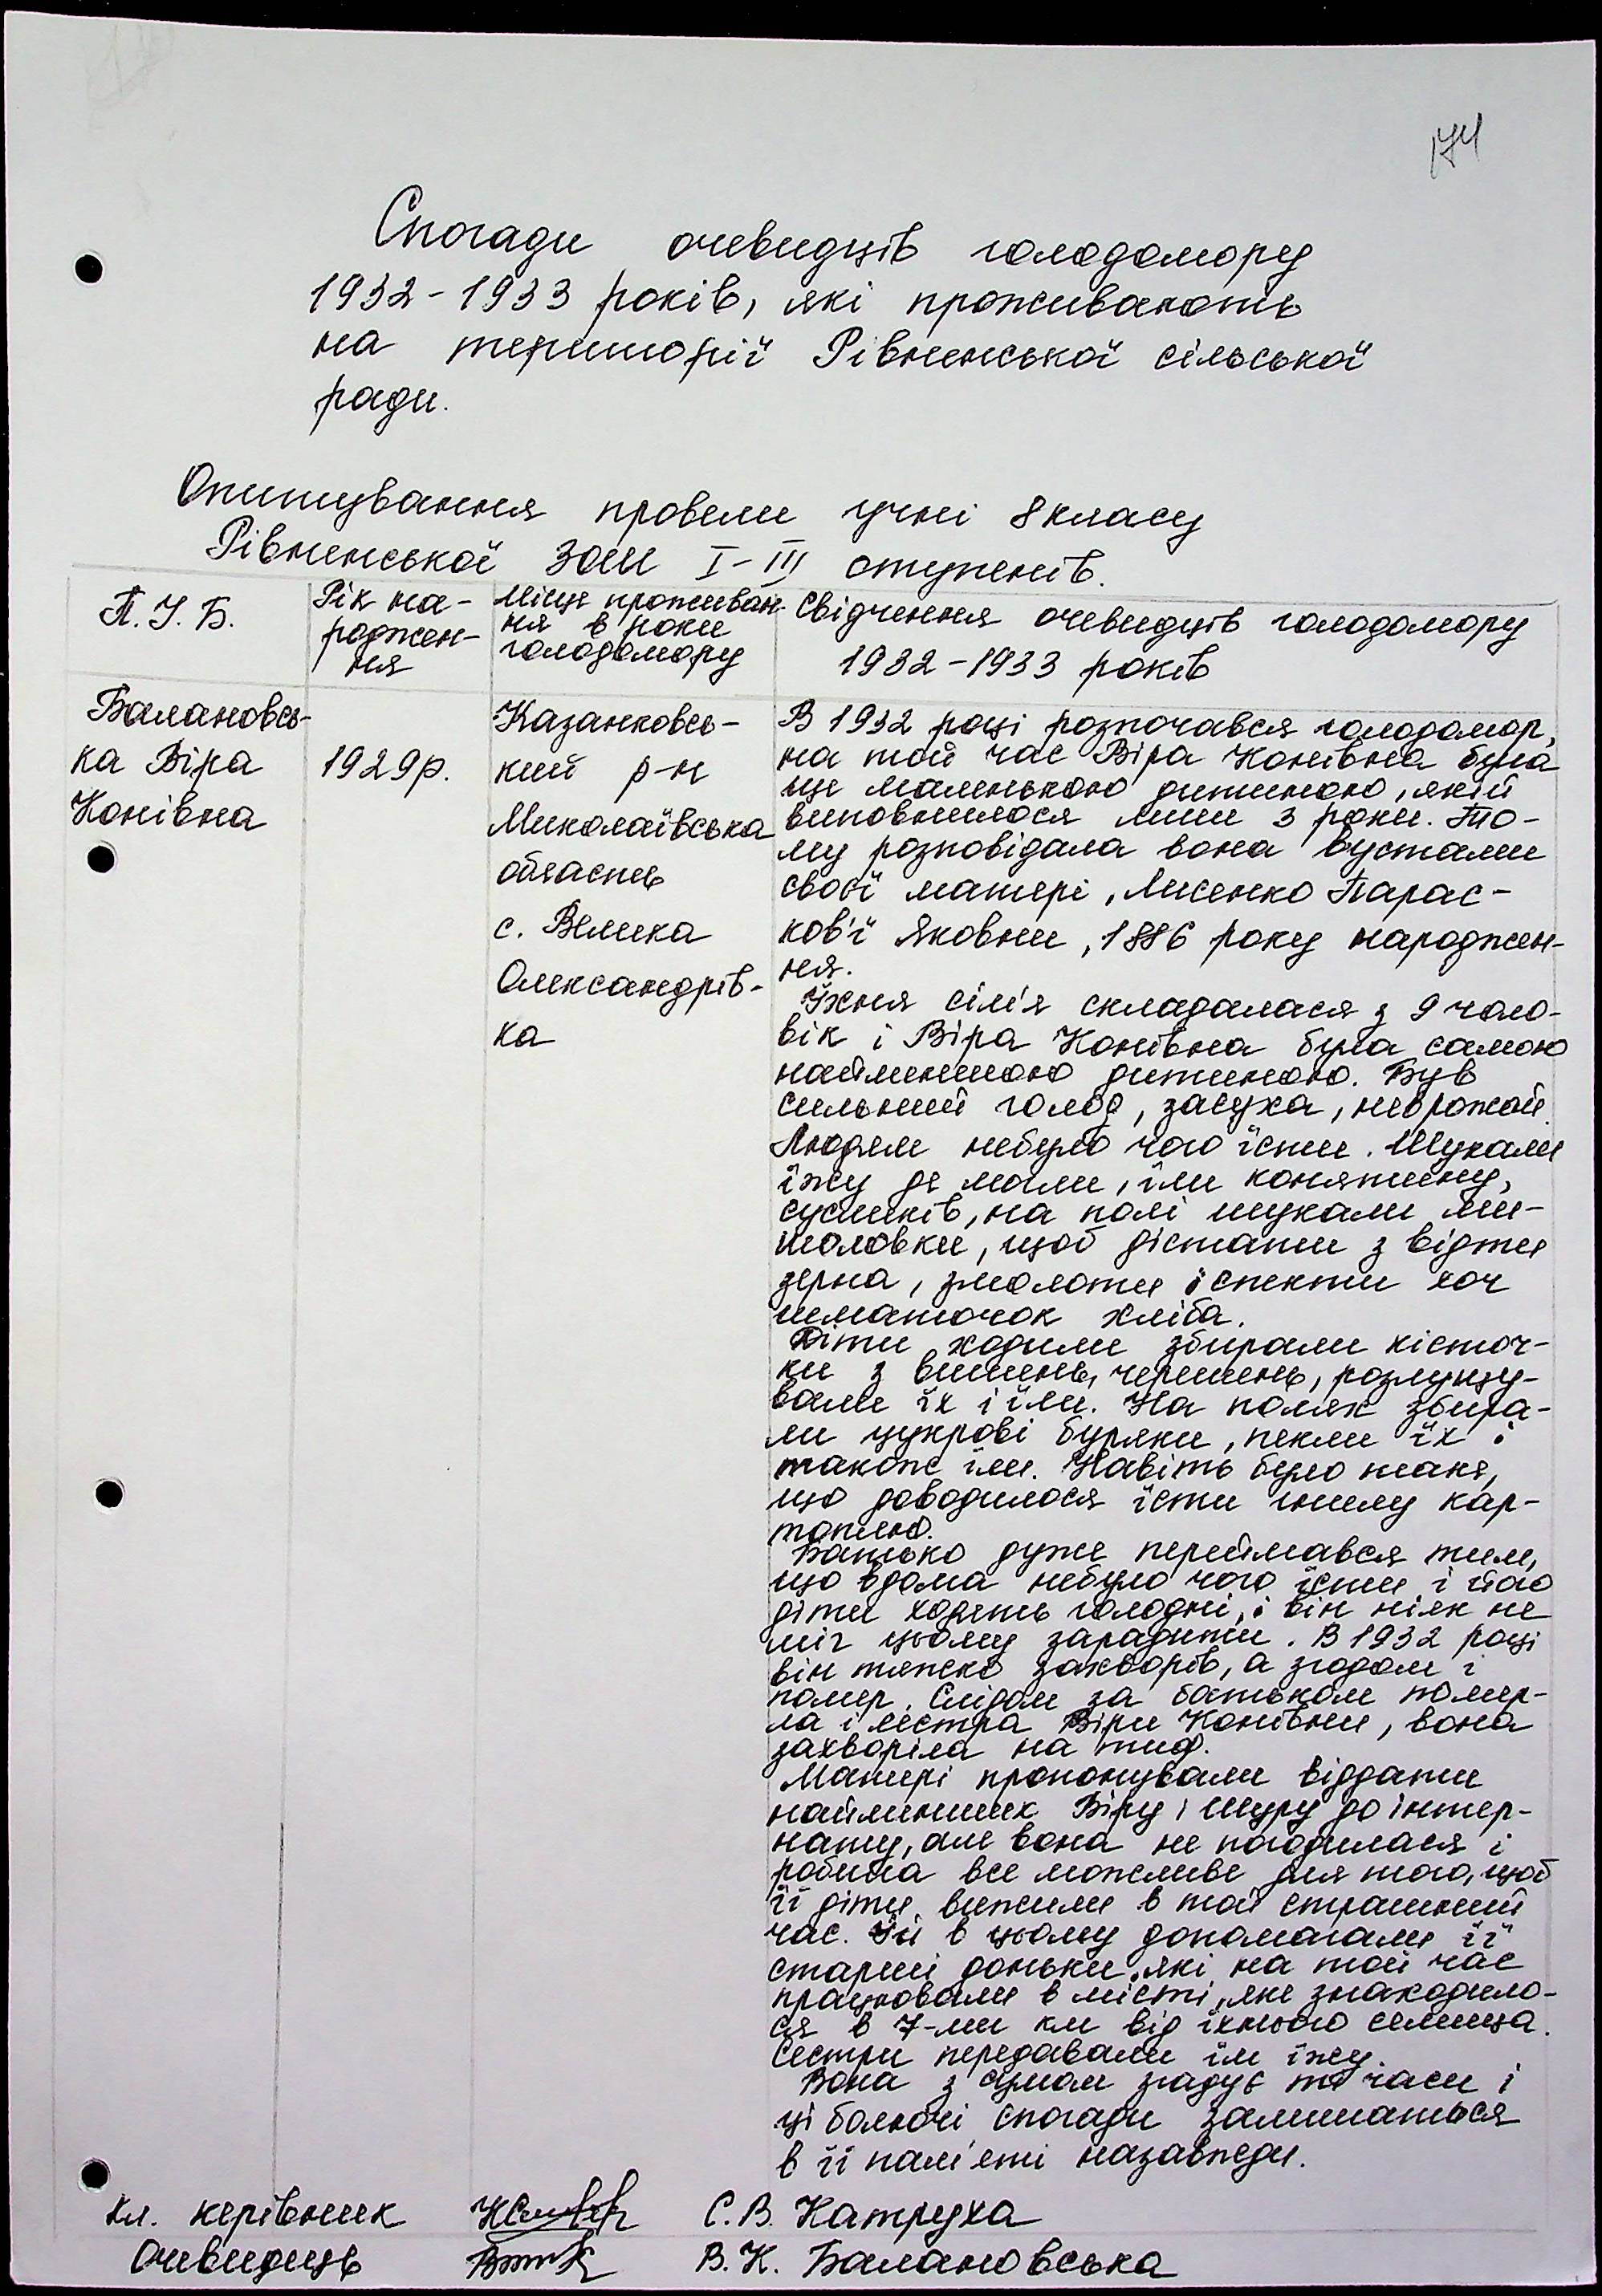 174
Спогади очевидців голодомору
1932-1933 років, які проживають
на території Рівненської сільської
ради.
Опитування провели учні 8 класу
Рівненської ЗОШ I-III ступенів.
П.І.Б.
Рік на-
роджен-
ня
Місце проживан-
ня в роки
голодомору
Свідчення очевидців голодомору
1932-1933 років
Балановсь-
ка Віра
Конівна
1929р.
Казанковсь-
кий р-н
Миколаївська
область
с. Велика
Олександрів-
ка
В 1932 році розпочався голодомор,
на той час Віра Конівна була
ще маленькою дитиною, якій
виповнилося лиш 3 роки. То-
му розповідала вона вустами
своєї матері, Лисенко Парас-
ков'ї Яковни, 1886 року народжен-
ня.
Їхня сім'я складалася з 9 чоло-
вік і Віра Конівна була самою
найменшою дитиною. Був
сильний голод, засуха, неврожай.
Людям небуло чого їсти. Шукали
їжу де мали, їли конятину,
сусликів, на полі шукали ми-
шоловки, щоб дістати з відти
зерна, змолоти і спекти хоч
шматочок хліба.
Діти ходили збирали кісточ-
ки з вишень, черешень, розлущу-
вали їх і їли. На полях збира-
ли цукрові буряки, пекли їх і
також їли. Навіть було таке,
що доводилося їсти гнилу кар-
топлю.
Батько дуже переймався тим,
що вдома небуло чого їсти і його
діти ходять голодні, і він ніяк не
міг цьому зарадити. В 1932 році
він тяжко захворів, а згодом і
помер. Слідом за батьком помер-
ла і сестра Віри Конівни, вона
захворіла на тиф.
Матері пропонували віддати
найменших Віру і Шуру до інтер-
нату, але вона не погодилася і
робила все можливе для того, щоб
її діти вижили в той страшний
час. Їй в цьому допомагали її
старші доньки, які на той час
працювали в місті, яке знаходило-
ся в 7-ми км від їхнього селища.
Сестри передавали їм їжу.
Вона з сумом згадує ті часи і
ці болючі спогади залишаться
в її пам'яті назавжди.
Кл. керівник С.В. Катруха
Очевидець В.К. Балановська